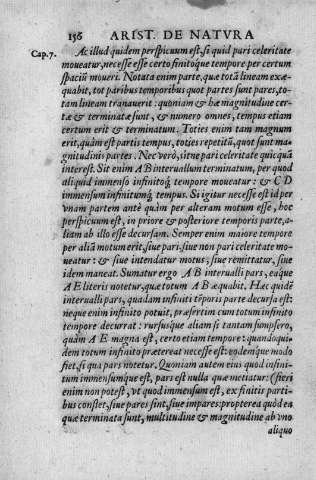 156 ARIST. DE NATVRA
Cap.7. Ac illud quidem perspicuum est, si quid pari celeritate
moueatur, necesse esse certo finitoque tempore per certum
spaciũ moueri. Notata enim parte, quæ totã lineam exæ-
quabit, tot paribus temporibus quot partes sunt pares, to-
tam lineam tranauerit: quoniam & hæ magnitudine cer-
tæ & terminatæ sunt, & numero omnes, tempus etiam
certum erit & terminatum. Toties enim tam magnum
erit, quàm est partis tempus, toties repetitũ, quot sunt ma-
gnitudinis partes. Nec verò, sit ne pari celeritate quicquã
interest. Sit enim A B interuallum terminatum, per quod
aliquid immenso infinitoq́; tempore moueatur: & C D
immensum infinitumq́; tempus. Si igitur necesse est id per
vnam partem antè quàm per alteram motum esse, hoc
perspicuum est, in priore & posteriore temporis parte, a-
liam ab illo esse decursam. Semper enim maiore tempore
per aliã motum erit, siue pari, siue non pari celeritate mo-
ueatur: & siue intendatur motus, siue remittatur, siue
idem maneat. Sumatur ergo A B interualli pars, eaque
A E literis notetur, quæ totum A B æquabit. Hæc quidẽ
interualli pars, quadam infiniti tẽporis parte decursa est:
neque enim infinito potuit, præsertim cum totum infinito
tempore decurrat: rursusque aliam si tantam sumpsero,
quàm A E magna est, certo etiam tempore: quandoqui-
dem totum infinito prætereat necesse est: eodemque modo
fiet, si qua pars notetur. Quoniam autem eius quod infini-
tum immensumque est, pars est nulla quæ metiatur: (fieri
enim non potest, vt quod immensum est, ex finitis parti-
bus constet, siue pares sint, siue impares: propterea quòd ea
quæ terminata sunt, multitudine & magnitudine ab vno
aliquo